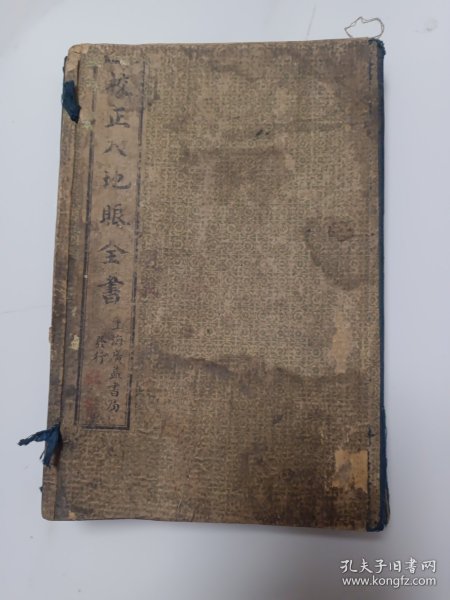 校正人地眼全書
上海廣益書局
發行
孔夫子旧书网
www.kongfz.com